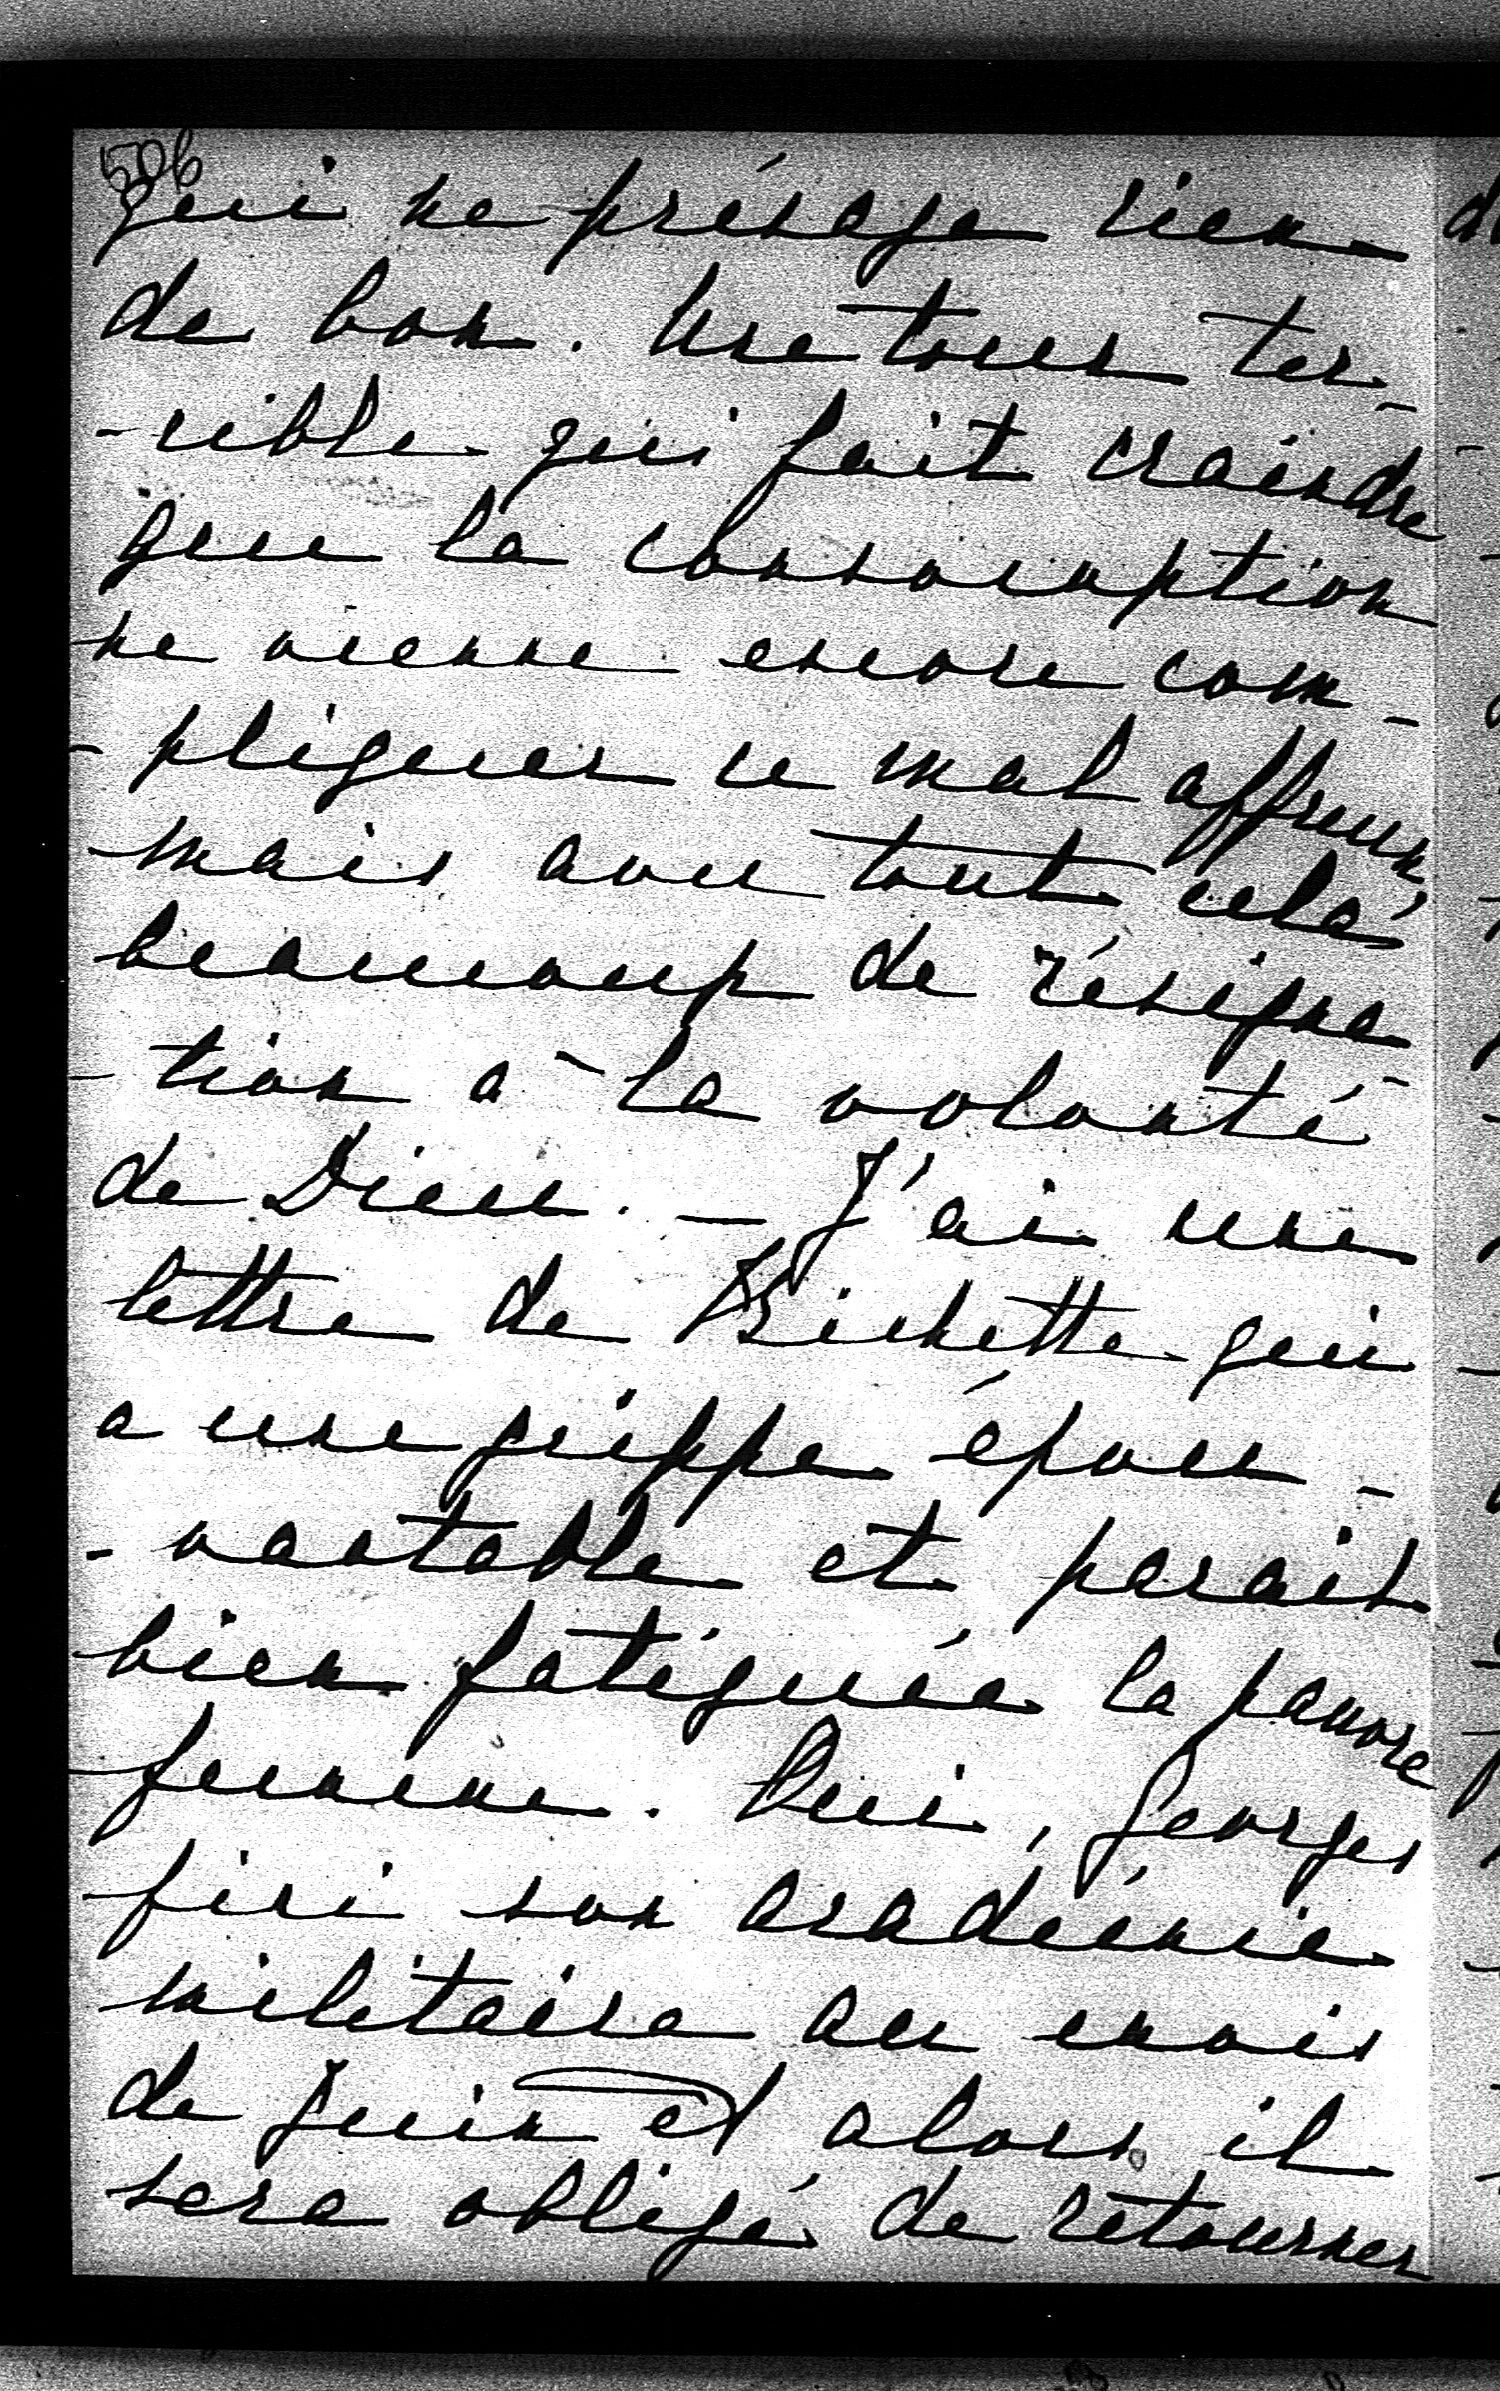 506
qui ne présage rien
de bon. Une toux ter-
-rible qui fait craindre
que la consomption
ne vienne encore com-
-pliquer ce mal affreux
mais avec tout cela
beaucoup de résigna
-tion à la volonté
de Dieu. — J'ai une
lettre de Brichette qui
a une grippe épou-
-vantable et parait
bien fatiguée la pauvre
femme. Oui, Georges
fini son académie
militaire au mois
de Juin et alors il
sera obligé de retourner